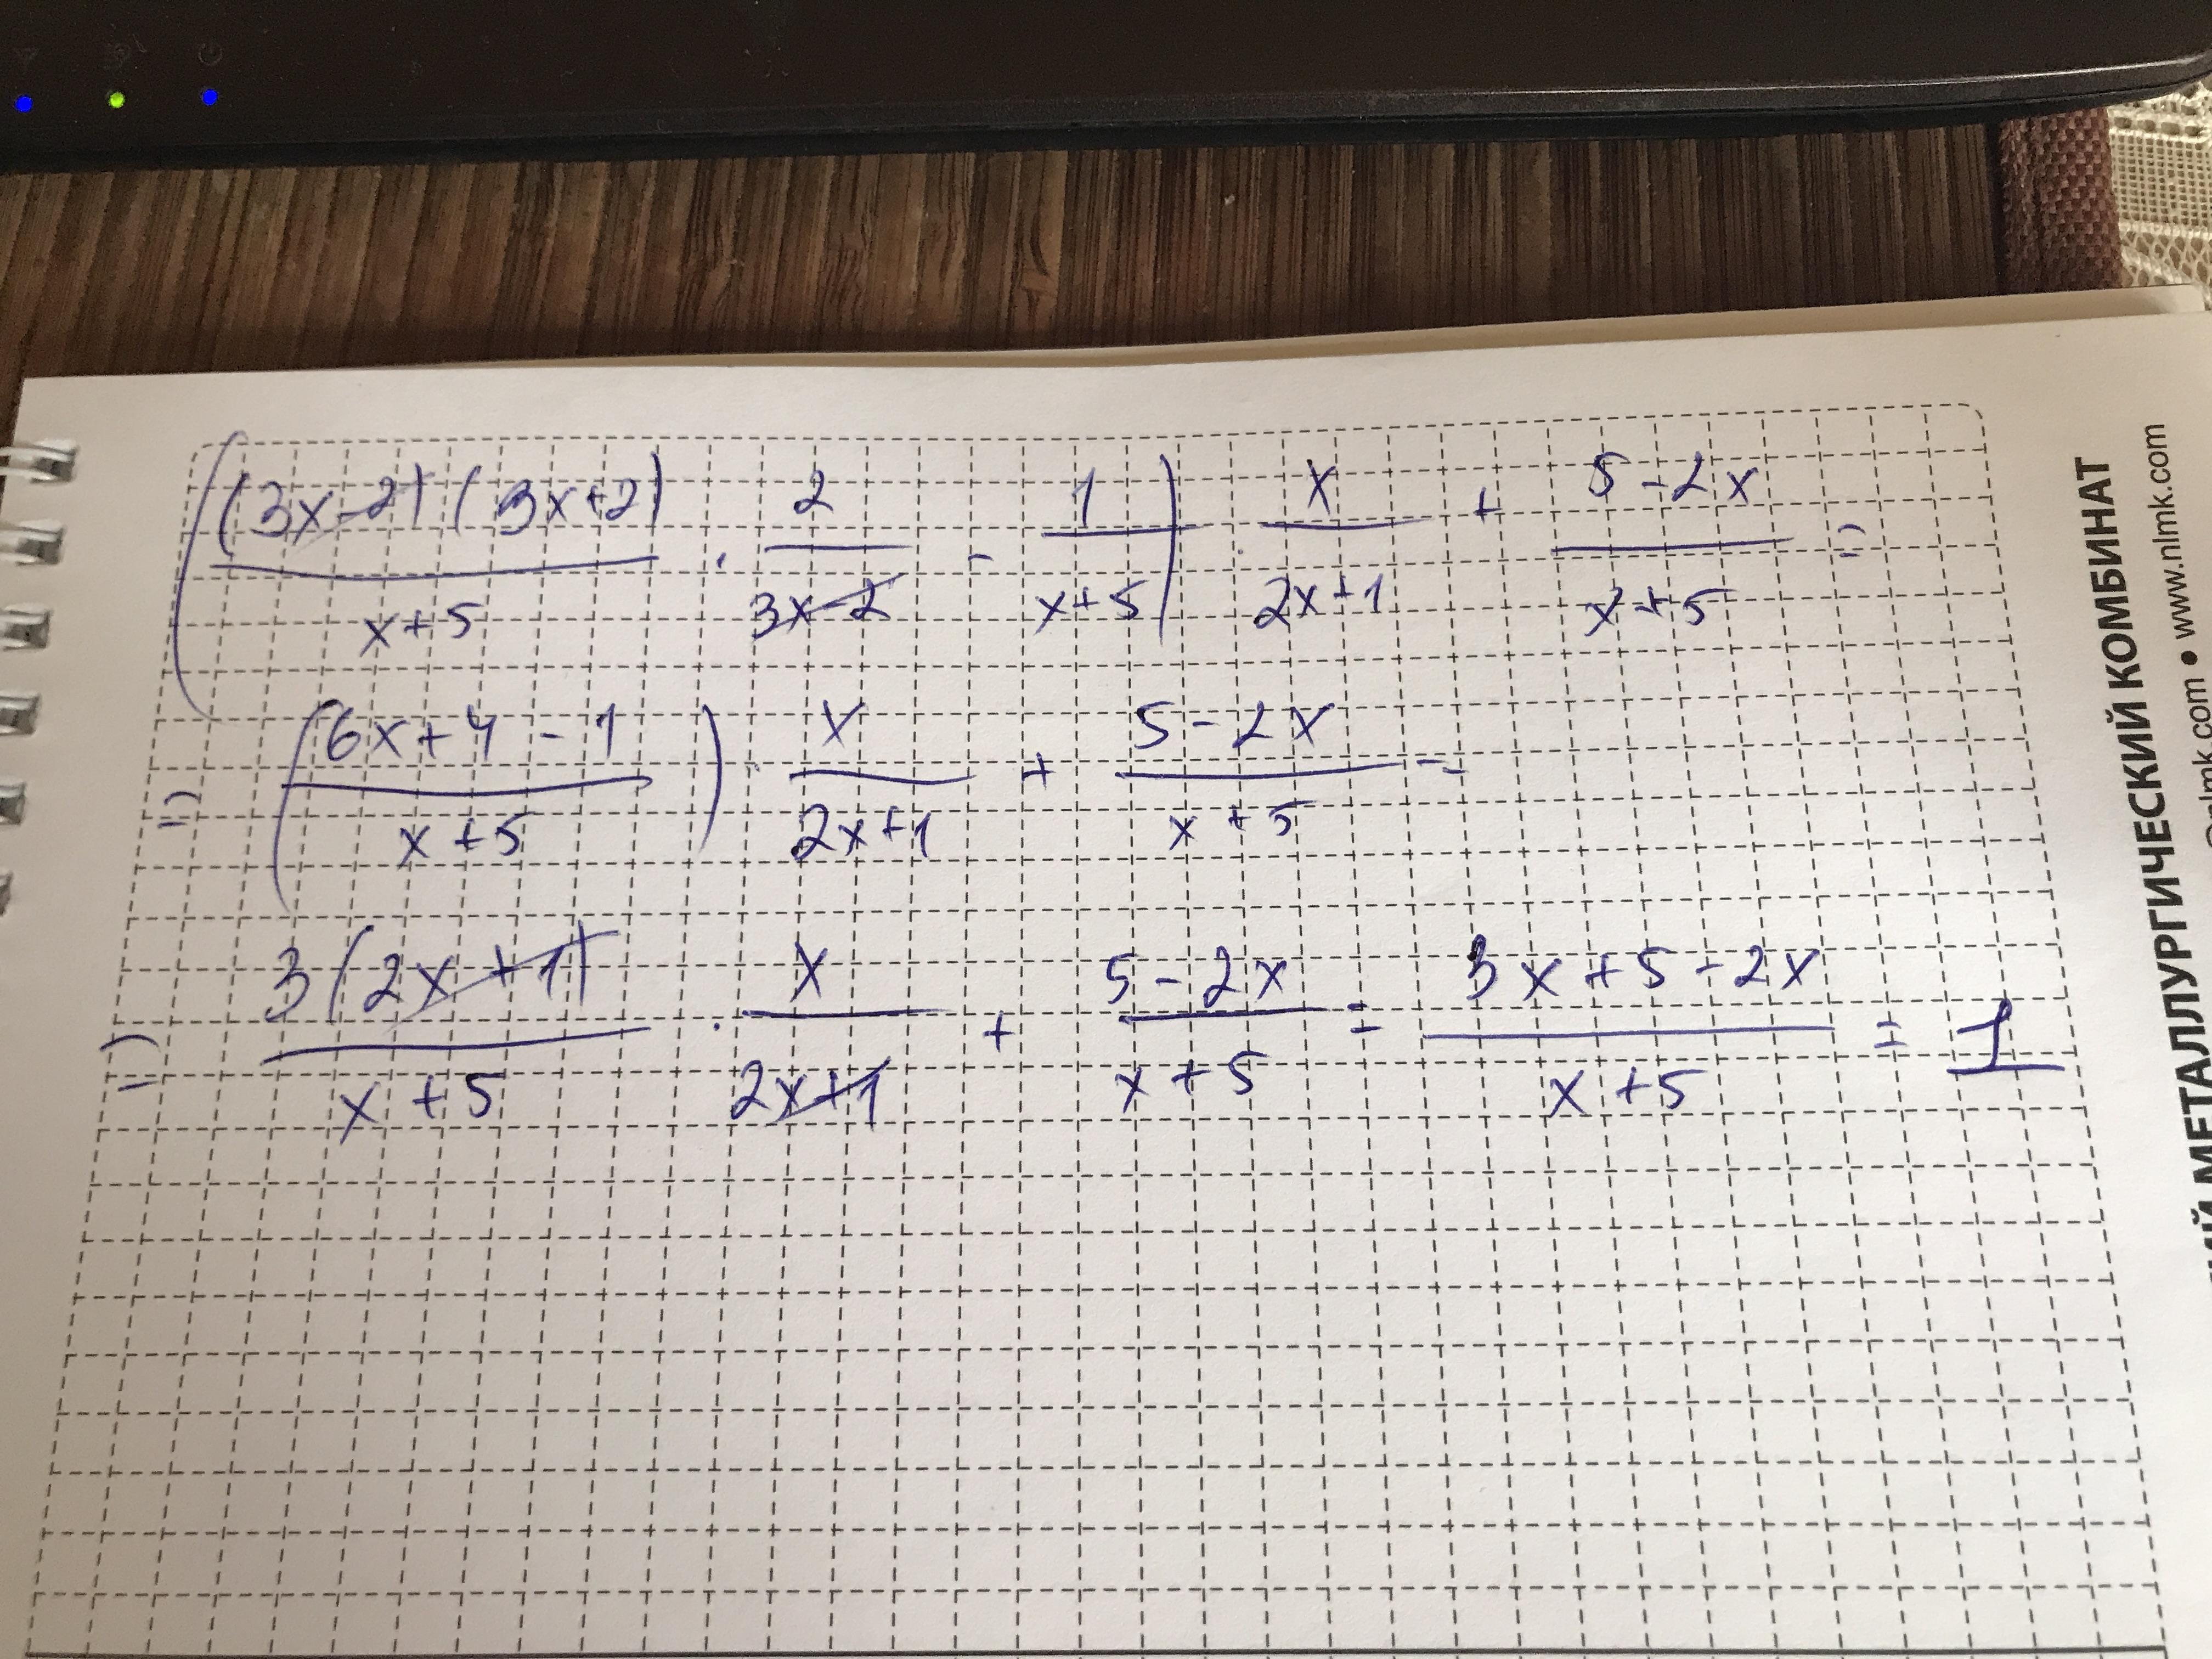 ((3x-2)(3x+2)/(x+5) · 2/(3x-2) - 1/(x+5)) · x/(2x+1) + (5-2x)/(x+5) =
= ((6x+4-1)/(x+5)) · x/(2x+1) + (5-2x)/(x+5) =
= 3(2x+1)/(x+5) · x/(2x+1) + (5-2x)/(x+5) = (3x+5-2x)/(x+5) = 1
МЕТАЛЛУРГИЧЕСКИЙ КОМБИНАТ
nlmk.com • www.nlmk.com